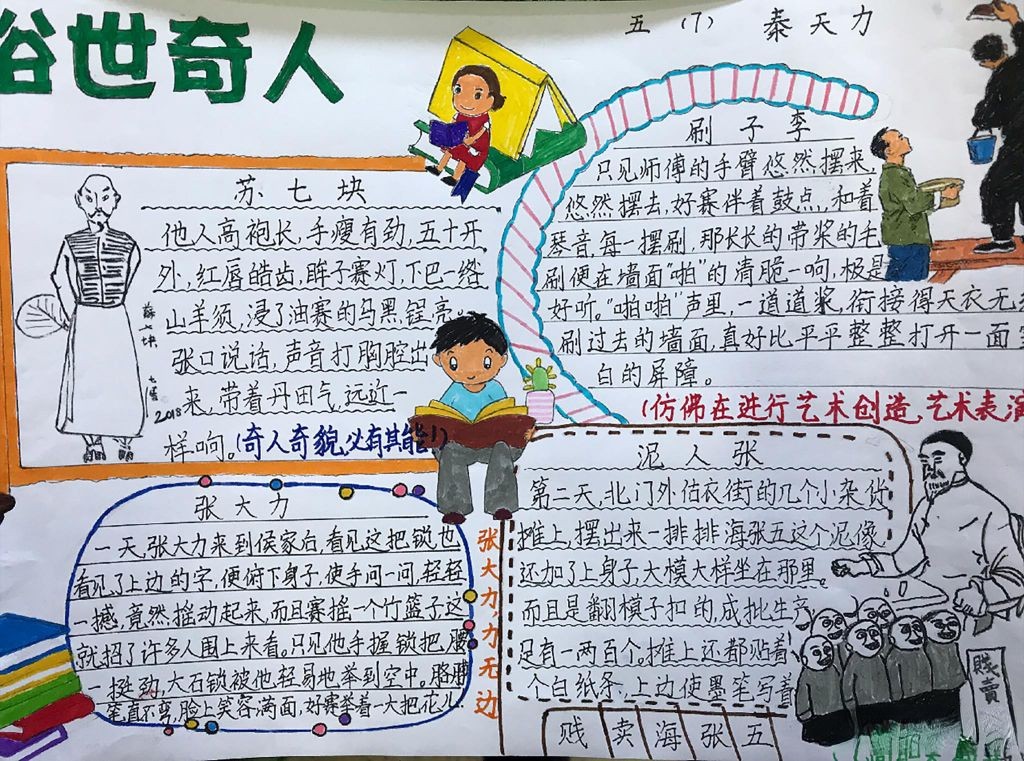 俗世奇人
五（7） 秦天力
苏七块
他人高袍长，手瘦有劲，五十开
外，红唇皓齿，眸子赛灯，下巴一绺
山羊须，浸了油赛的乌黑锃亮。
张口说话，声音打胸腔出
来，带着丹田气，远近一
样响。（奇人奇貌，必有其能！）
苏七块
2018
刷子李
只见师傅的手臂悠然摆来，
悠然摆去，好赛伴着鼓点，和着
琴音，每一摆刷，那长长的带浆的毛
刷便在墙面“啪”的清脆一响，极是
好听。“啪啪”声里，一道道浆，衔接得天衣无
刷过去的墙面，真好比平平整整打开一面
白的屏障。
（仿佛在进行艺术创造，艺术表演
张大力
一天，张大力来到侯家后，看见这把锁，也
看见了上边的字，便俯下身子，使手问一问，轻轻
一撼，竟然摇动起来，而且赛摇一个竹篮子，这
就招了许多人围上来看。只见他手握锁把，腰
一挺劲，大石锁被他轻易地举到空中。胳膊
笔直不弯，脸上笑容满面，好赛举着一大把花儿
张大力力无边
泥人张
第二天，北门外估衣街的几个小杂货
摊上，摆出来一排排海张五这个泥像，
还加了上身子，大模大样坐在那里。
而且是翻模子扣的，成批生产
足有一两百个。摊上还都贴着
个白纸条，上边使墨笔写着
贱卖海张五
贱賣